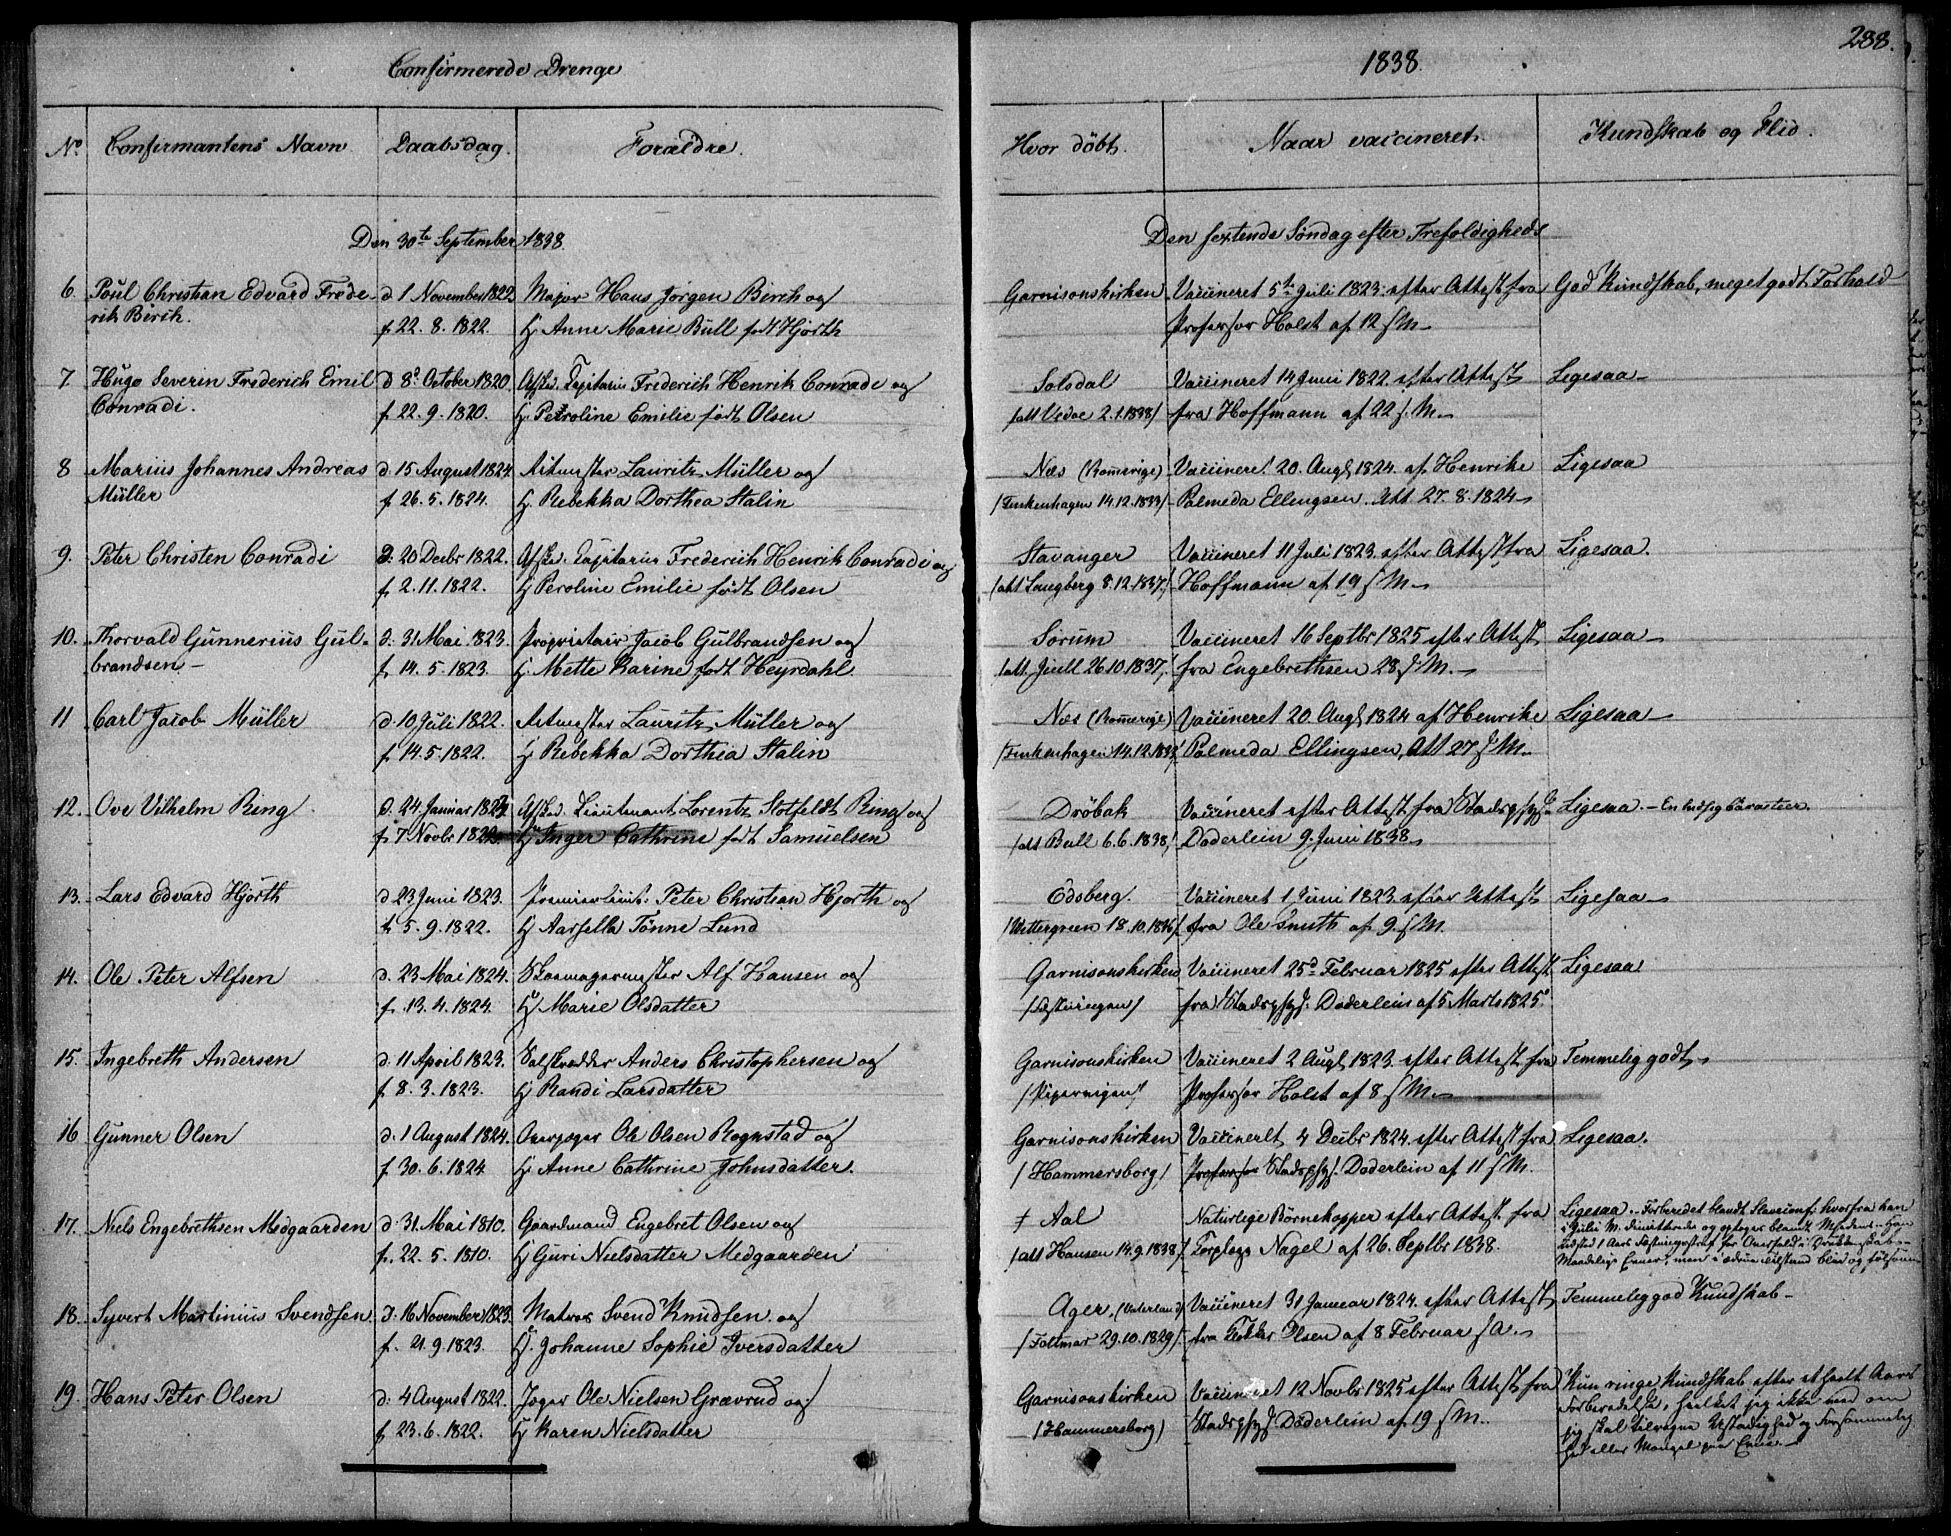 Confirmerede Drenge
No. Confirmantens Navn Daabsdag. Forældre.
Den 30te September 1838
6 Poul Christian Edvard Frede- d 1 November 1822 Major Hans Jørgen Birch og
rik Birch. f 22. 8. 1822. H Anne Marie Bull født Hjorth
7. Hugo Severin Frederich Emil d 8d October 1820. Afsked. Capitain Frederich Henrik Conradi og
Conradi. f 22. 9. 1820. H Petroline Emilie født Olsen
8 Marius Johannes Andreas d. 15 August 1824. Lauritz Müller og
Müller f 26. 5. 1824. H. Rebekka Dorthea Stalin
9. Peter Christen Conradi d. 20 Decbr 1822. Afsked. Capitain Frederich Henrik Conradi og
f. 2. 11. 1822. H Peroline Emilie født Olsen
10. Thorvald Gunnerius Gul- d. 31 Mai 1823. Proprietair Jacob Gulbrandsen og
brandsen – f. 14. 5. 1823. H. Mette Karine født Heyerdahl
11 Carl Jacob Müller d. 10 Juli 1822. Lauritz Müller og
f. 14. 5. 1822. H Rebekka Dorthea Stalin
12. Ove Vilhelm Ring d. 24 Januar Afsked. Lieutenant Lorentz Stotfeldt Ring og
f. 7 Novbr H Inger Cathrine født Samuelsen
13. Lars Edvard Hjorth d 23 Juni 1823. Premierlieut. Peter Christian Hjorth og
f. 5. 9. 1822. H Tønne Lund
14. Ole Peter Alfsen d. 23 Mai 1824. Skomagermester Alf Hansen og
f. 13. 4. 1824. H Marie Olsdatter
15. Ingebreth Andersen d. 11 April 1823. Anders Christophersen og
f. 8. 3. 1823. H Randi Larsdatter
16 Gunner Olsen d. 1 August 1824. Overjæger Ole Olsen Rognstad og
f 30. 6. 1824 H Anne Cathrine Johnsdatter.
17. Niels Engebrethsen Medgaarden d. 31. Mai 1810. Gaardmand Engebret Olsen og
f. 22. 5. 1810. H Guri Nielsdatter Medgaarden
18. Syvert Martinius Svendsen d. 16 November 1823. Matros Svend Knudsen og
f. 21. 9. 1823. H. Johanne Sophie Iversdatter
19. Hans Peter Olsen d. 4 August 1822. Jæger Ole Nielsen Grævrud og
f 23. 6. 1822. H Karen Nielsdatter
1838. 288.
Hvor døbt. Naar vaccineret. Kundskab og Flid.
Den sextende Søndag efter Trefoldigheds
Garnisonskirken Vaccineret 5te Juli 1823. efter Attest fra God Kundskab, meget godt Forhold
Professor Holst af 12 s M.
Solsdal Vaccineret 14 Juni 1822 efter Attest Ligesaa –
/att Vedoe 2.1.1838/ fra Hoffmann af 22 s. M.
Næs (Romerige) Vaccineret 20. Augs 1824. af Henrike Ligesaa
/Finkenhagen 14.12.1833/ Palmeda Ellingsen. Att 27. 8. 1824
Stavanger Vaccineret 11 Juli 1823. efter Attest fra Ligesaa.
/att Langberg 8.12.1837./ Hoffmann af 19 s M.
Sørum Vaccineret 16 Septbr 1825 efter Attest Ligesaa –
/att. Juell 26.10.1837./ fra Engebrethsen 28 s M.
Næs (Romerige) Vaccineret 20. Augs 1824 af Henrike Ligesaa –
/Finkenhagen 14.12.1833/ Palmeda Ellingsen, Att 27 s M.
Drøbak Vaccineret efter Attest fra Stadsphys. Ligesaa. –
/att Bull 6.6.1838./ Døderlein 9. Juni 1838
Edsberg. Vaccineret 1 Juni 1823 efter Attest Ligesaa –
/Wettergreen 18.10.1836/. fra Ole Smith af 9. s M.
Garnisonskirken Vaccineret 25d Februar 1825 efter Attest Ligesaa
/Fæstningen/ fra Stadsphys. Døderlein af 5 Marts 1825.
Garnisonskirken Vaccineret 2 Augs 1823. efter Attest fra Temmelig godt
/Pipervigen/ Professor Holst af 8 s M.
Garnisonskirken Vaccineret 4 Decbr 1824. efter Attest fra Ligesaa.
/Hammersborg/ Professor Stadsphys. Døderlein af 11 s M.
Aal Naturlige Børnekopper efter Attest fra Ligesaa. Forberedet blandt hvorfra han
/att Hansen 14.9.1838/. Corplæge Nagel af 26. Septbr 1838. i Juli M. og optoges blandt
1 Aars Fæstningsstraf for
Maadelige Evner, men i
Ager, (Vaterland) Vaccineret 31 Januar 1824. efter Attest Temmelig god Kundskab –
/Foltmar 29.10.1829/. fra Olsen af 8 Februar s A.
Garnisonskirken Vaccineret 12 Novbr 1825 efter Attest fra Kun ringe Kundskab efter et heelt Aars
/Hammersborg/ Stadsphys Døderlein af 19 s M. Forberedelse, hvilket jeg ikke veed om
jeg skal tilregne Ustadighed og Forsømmelig
hed eller Mangel paa Evne –